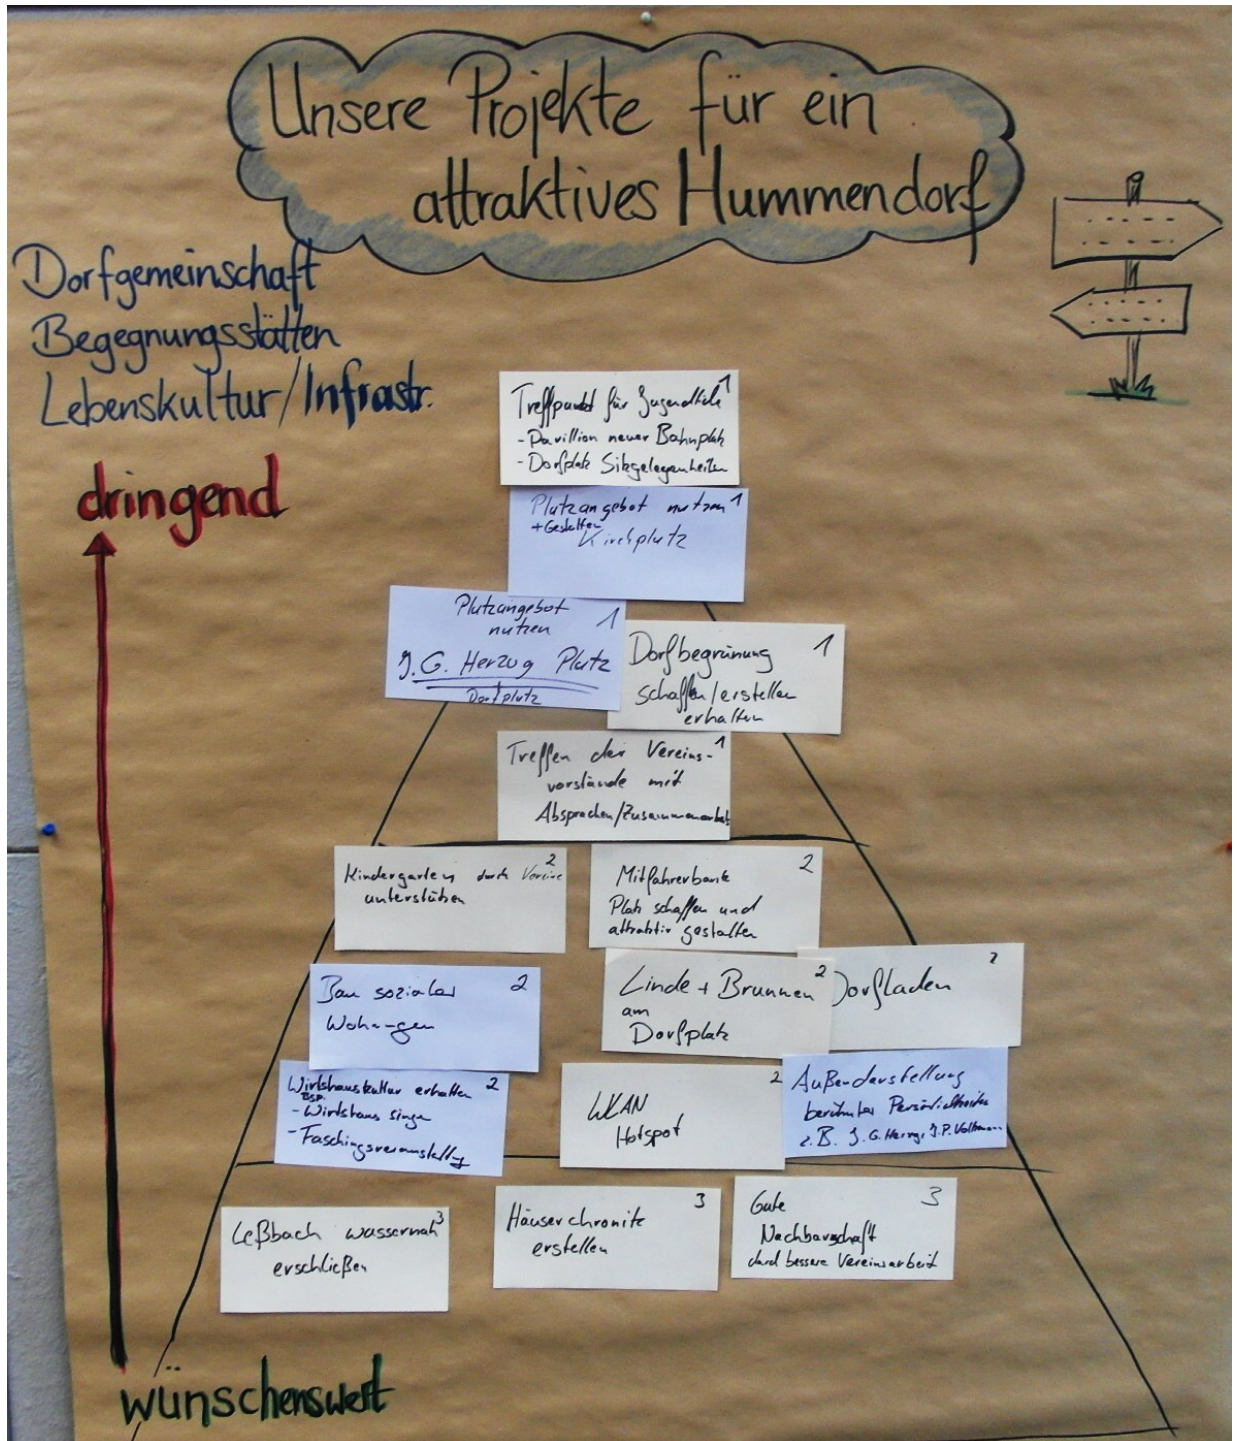 Unsere Projekte für ein
attraktives Hummendorf
Dorfgemeinschaft
Begegnungsstätten
Lebenskultur/Infrastr.
dringend
Treffpunkt für Jugendliche 1
- Pavillion neuer Bahnplatz
- Dorfplatz Sitzgelegenheiten
Platzangebot nutzen 1
+ Gestalten
Kirchplatz
Platzangebot
nutzen 1
J.G. Herzog Platz
Dorfplatz
Dorfbegrünung 1
schaffen/erstellen
erhalten
Treffen der Vereins- 1
vorstände mit
Absprachen/Zusammenarbeit
Kindergarten durch Vereine 2
unterstützen
Mitfahrerbank 2
Platz schaffen und
attraktiv gestalten
Bau sozialer 2
Wohnungen
Linde + Brunnen 2
am
Dorfplatz
Dorfladen 2
Wirtshauskultur erhalten 2
BSP.
- Wirtshaus singen
- Faschingsveranstaltung
WLAN 2
Hotspot
Außendarstellung
berühmter Persönlichkeiten
z.B. J.G. Herzog, J.P.
Leßbach wassernah 3
erschließen
Häuserchronik 3
erstellen
Gute 3
Nachbarschaft
durch bessere Vereinsarbeit
wünschenswert